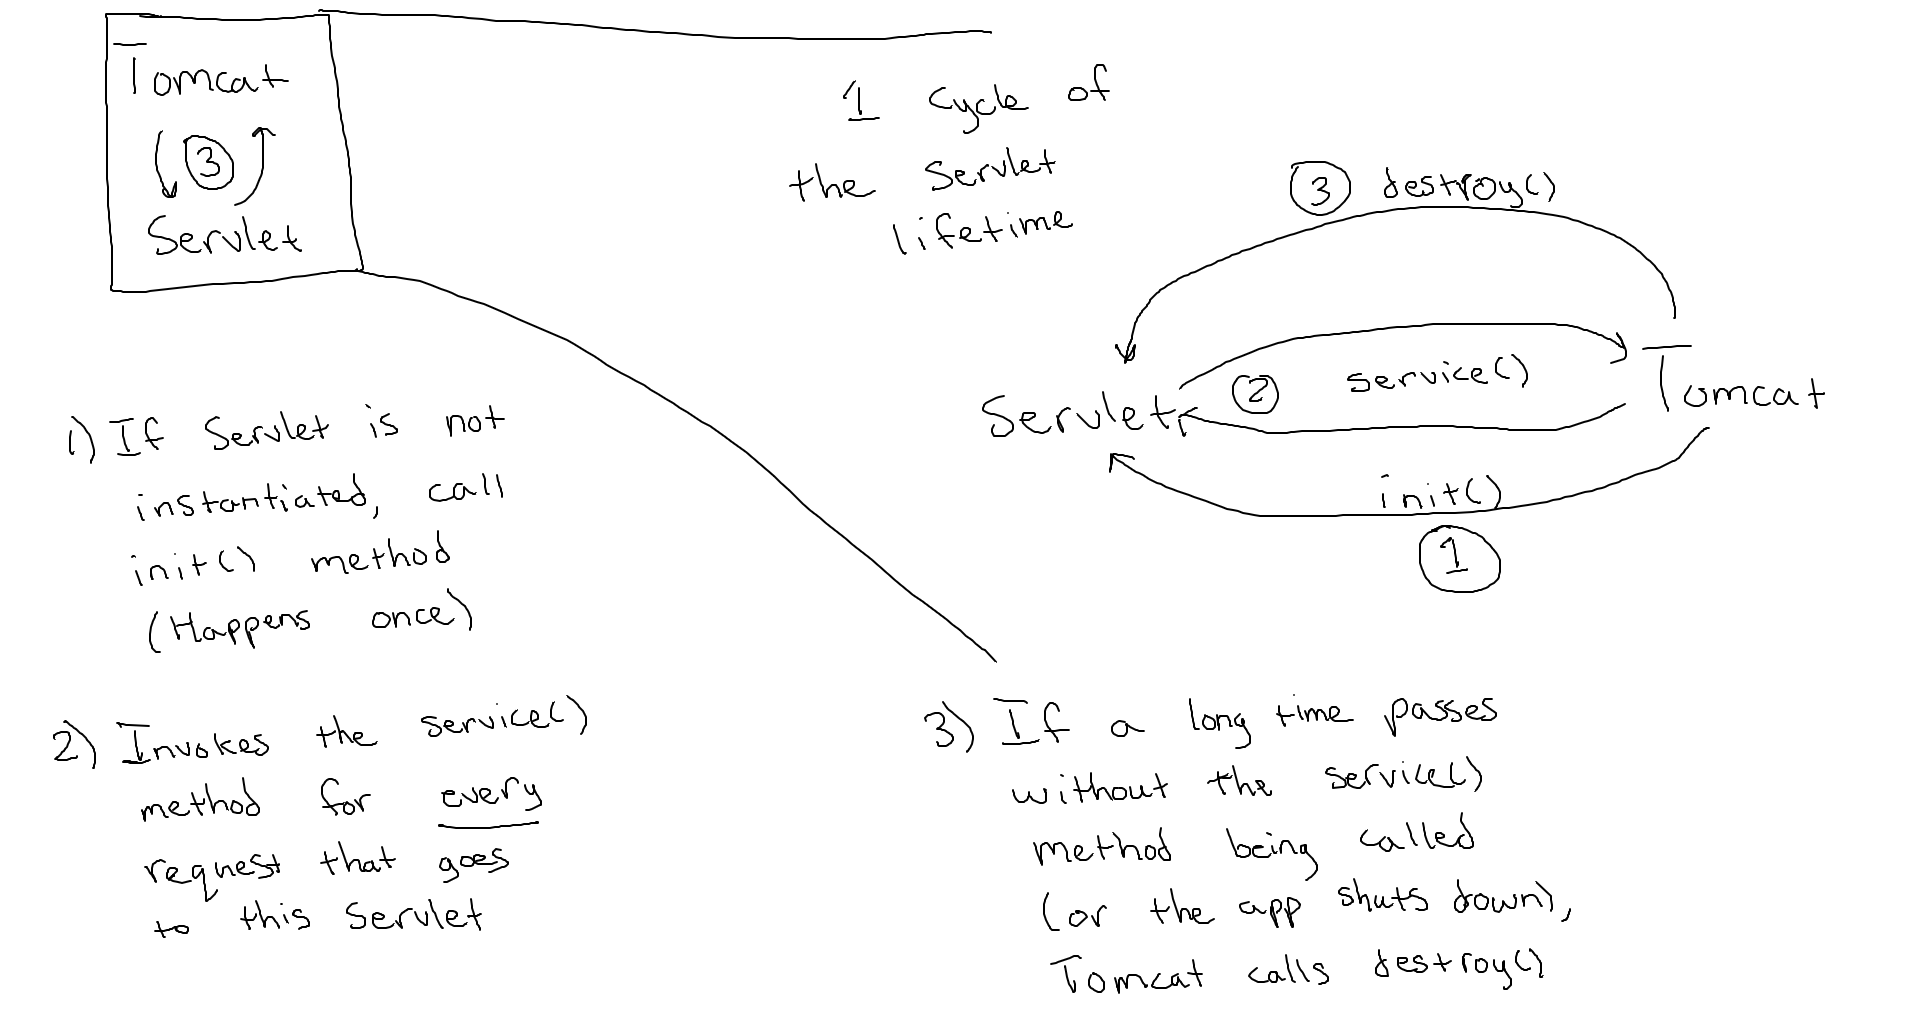 Tomcat
3
Servlet
1 Cycle of
the Servlet
lifetime
3 destroy()
2 service()
Servlet
Tomcat
init()
1
1) If Servlet is not
instantiated, call
init() method
(Happens once)
2) Invokes the service()
method for every
request that goes
to this Servlet
3) If a long time passes
without the service()
method being called
(or the app shuts down),
Tomcat calls destroy()